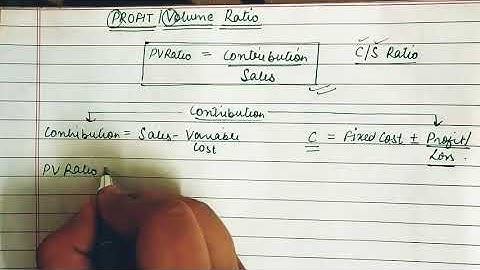 PROFIT / Volume Ratio
PV Ratio = Contribution
Sales
C/S Ratio
Contribution
Contribution = Sales - Variable
Cost
C = Fixed Cost ± Profit/
Loss.
PV Ratio